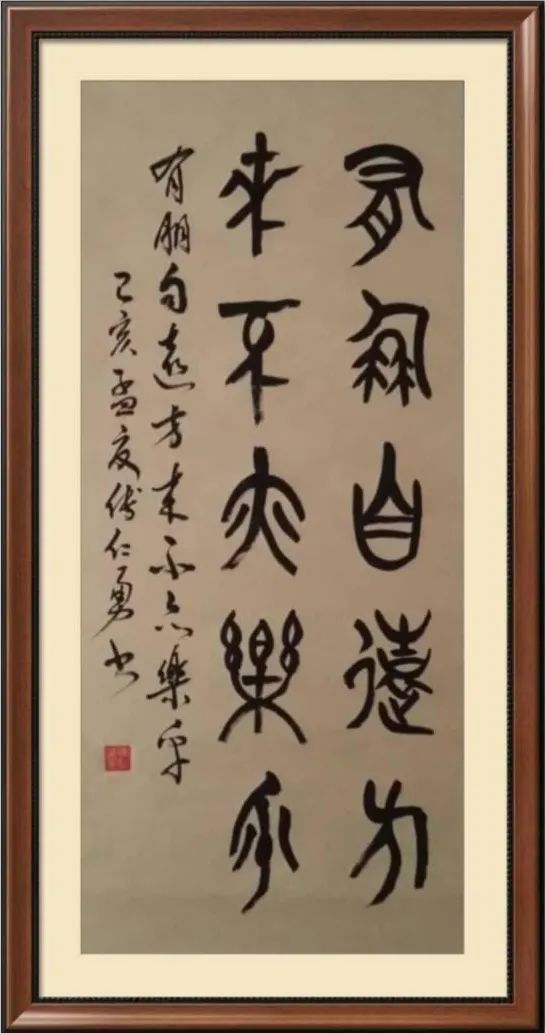 有朋自遠方
來不亦樂乎
有朋自遠方來不亦樂乎
己亥孟夏傅仁勇書